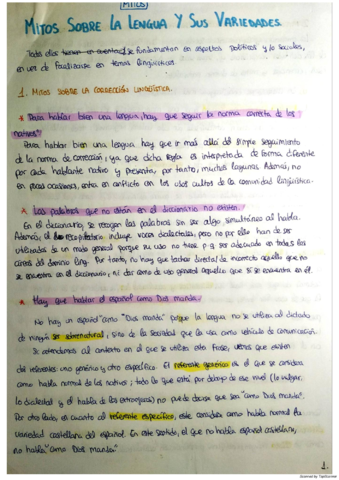 MITOS
MITOS SOBRE LA LENGUA Y SUS VARIEDADES.
Todos ellos se fundamentan en aspectos políticos y/o sociales,
en vez de focalizarse en temas lingüísticos.
1. MITOS SOBRE LA CORRECCIÓN LINGÜÍSTICA.
"Para hablar bien una lengua hay que seguir la norma correcta de los
nativos"
Para hablar bien una lengua hay que ir más allá del simple seguimiento
de la norma de corrección, ya que dicha regla es interpretada de forma diferente
por cada hablante nativo y presenta, por tanto, muchas lagunas. Además, no
en pocas ocasiones, entra en conflicto con los usos cultos de la comunidad lingüística.
Las palabras que no están en el diccionario no existen.
En el diccionario, se recogen las palabras sin ser algo simultáneo al habla.
Además, el recopilatorio incluye voces dialectales, pero no por ello han de ser
utilizados de una manera general porque su uso no tiene p q ser adecuado en todas las
áreas del dominio ling. Por tanto, no hay que tachar directo de incorrecto aquello que no
se encuentra en el diccionario, ni dar como de uso general aquello que sí se encuentra en él.
Hay que hablar el español como Dios manda.
No hay un español "como Dios manda" porque la lengua no se utiliza al dictado
de ningún ser sobrenatural, sino de la sociedad que la usa como vehículo de comunicación.
Si atendemos al contexto en el que se utiliza esta frase, vemos que existen
dos referentes: uno genérico y otro específico. El referente genérico es el que se considera
como habla normal de los nativos; todo lo que está por debajo de ese nivel (lo vulgar,
lo dialectal y el habla de los extranjeros) no puede decirse que sea "como Dios manda".
Por otro lado, en cuanto al referente específico, este considera como habla normal la
variedad castellana del español. En este sentido, el que no habla español castellano,
no habla "como Dios manda"
1.
Scanned by TapScanner